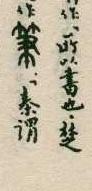 作「所以書也」楚
作筆「秦謂